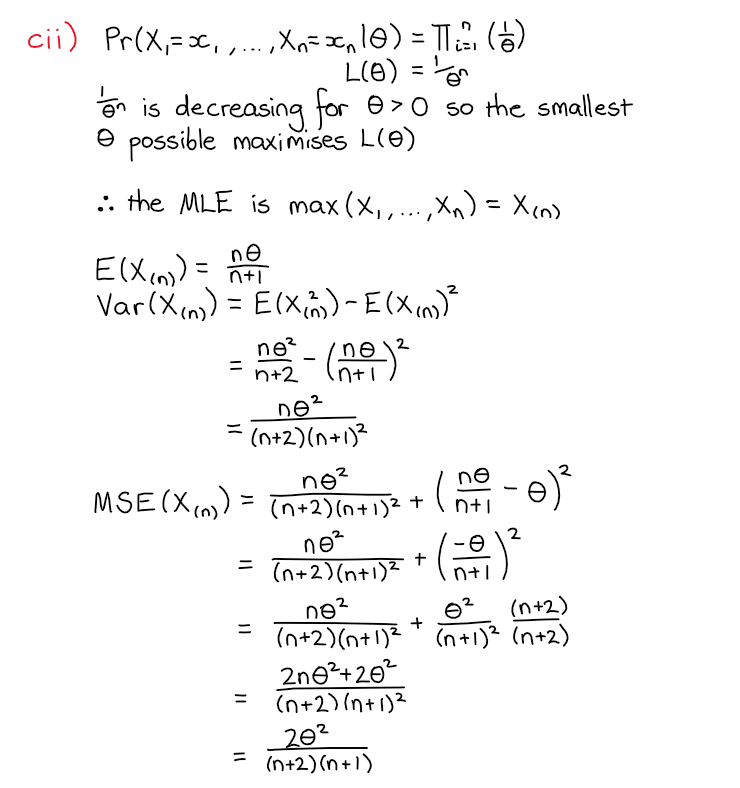 cii) Pr(X₁=x₁, ..., Xₙ=xₙ|θ) = ∏ᵢ₌₁ⁿ (1/θ)
L(θ) = 1/θⁿ
1/θⁿ is decreasing for θ > 0 so the smallest
θ possible maximises L(θ)
∴ the MLE is max(X₁, ..., Xₙ) = X₍ₙ₎
E(X₍ₙ₎) = nθ/(n+1)
Var(X₍ₙ₎) = E(X₍ₙ₎²) - E(X₍ₙ₎)²
= nθ²/(n+2) - (nθ/(n+1))²
= nθ²/((n+2)(n+1)²)
MSE(X₍ₙ₎) = nθ²/((n+2)(n+1)²) + (nθ/(n+1) - θ)²
= nθ²/((n+2)(n+1)²) + (-θ/(n+1))²
= nθ²/((n+2)(n+1)²) + θ²/(n+1)² (n+2)/(n+2)
= (2nθ²+2θ²)/((n+2)(n+1)²)
= 2θ²/((n+2)(n+1))